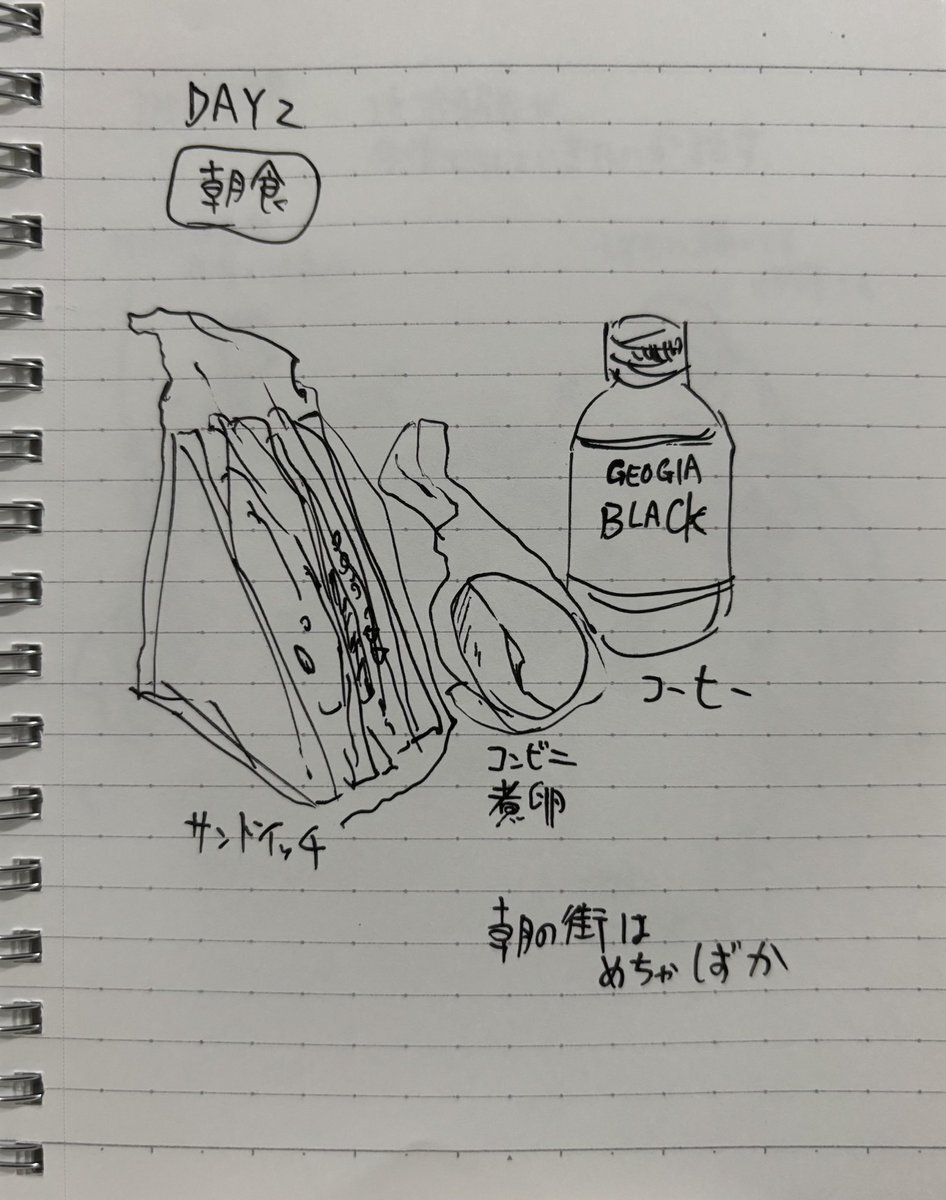 DAY 2
朝食
GEOGIA
BLACK
コーヒー
コンビニ
煮卵
サンドイッチ
朝の街は
めちゃしずか